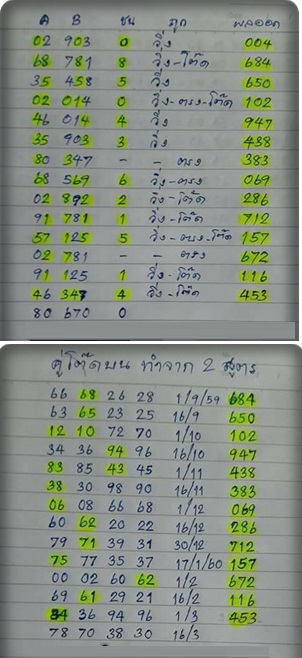 A B ชน ถูก ผลออก
02 903 0 วิ่ง 004
68 781 8 วิ่ง-โต๊ด 684
35 458 5 วิ่ง 650
02 014 0 วิ่ง-ตรง-โต๊ด 102
46 014 4 วิ่ง 947
35 903 3 วิ่ง 438
80 347 - - ตรง 383
68 569 6 วิ่ง-ตรง 069
02 892 2 วิ่ง-โต๊ด 286
91 781 1 วิ่ง-โต๊ด 712
57 125 5 วิ่ง-ตรง-โต๊ด 157
02 781 - - ตรง 672
91 125 1 วิ่ง-โต๊ด 116
46 347 4 วิ่ง-โต๊ด 453
80 670 0
คู่โต๊ดบน ทำจาก 2 สูตร
66 68 26 28 1/9/59 684
63 65 23 25 16/9 650
12 10 72 70 1/10 102
34 36 94 96 16/10 947
83 85 43 45 1/11 438
38 30 98 90 16/11 383
06 08 66 68 1/12 069
60 62 20 22 16/12 286
79 71 39 31 30/12 712
75 77 35 37 17/1/60 157
00 02 60 62 1/2 672
69 61 29 21 16/2 116
34 36 94 96 1/3 453
78 70 38 30 16/3